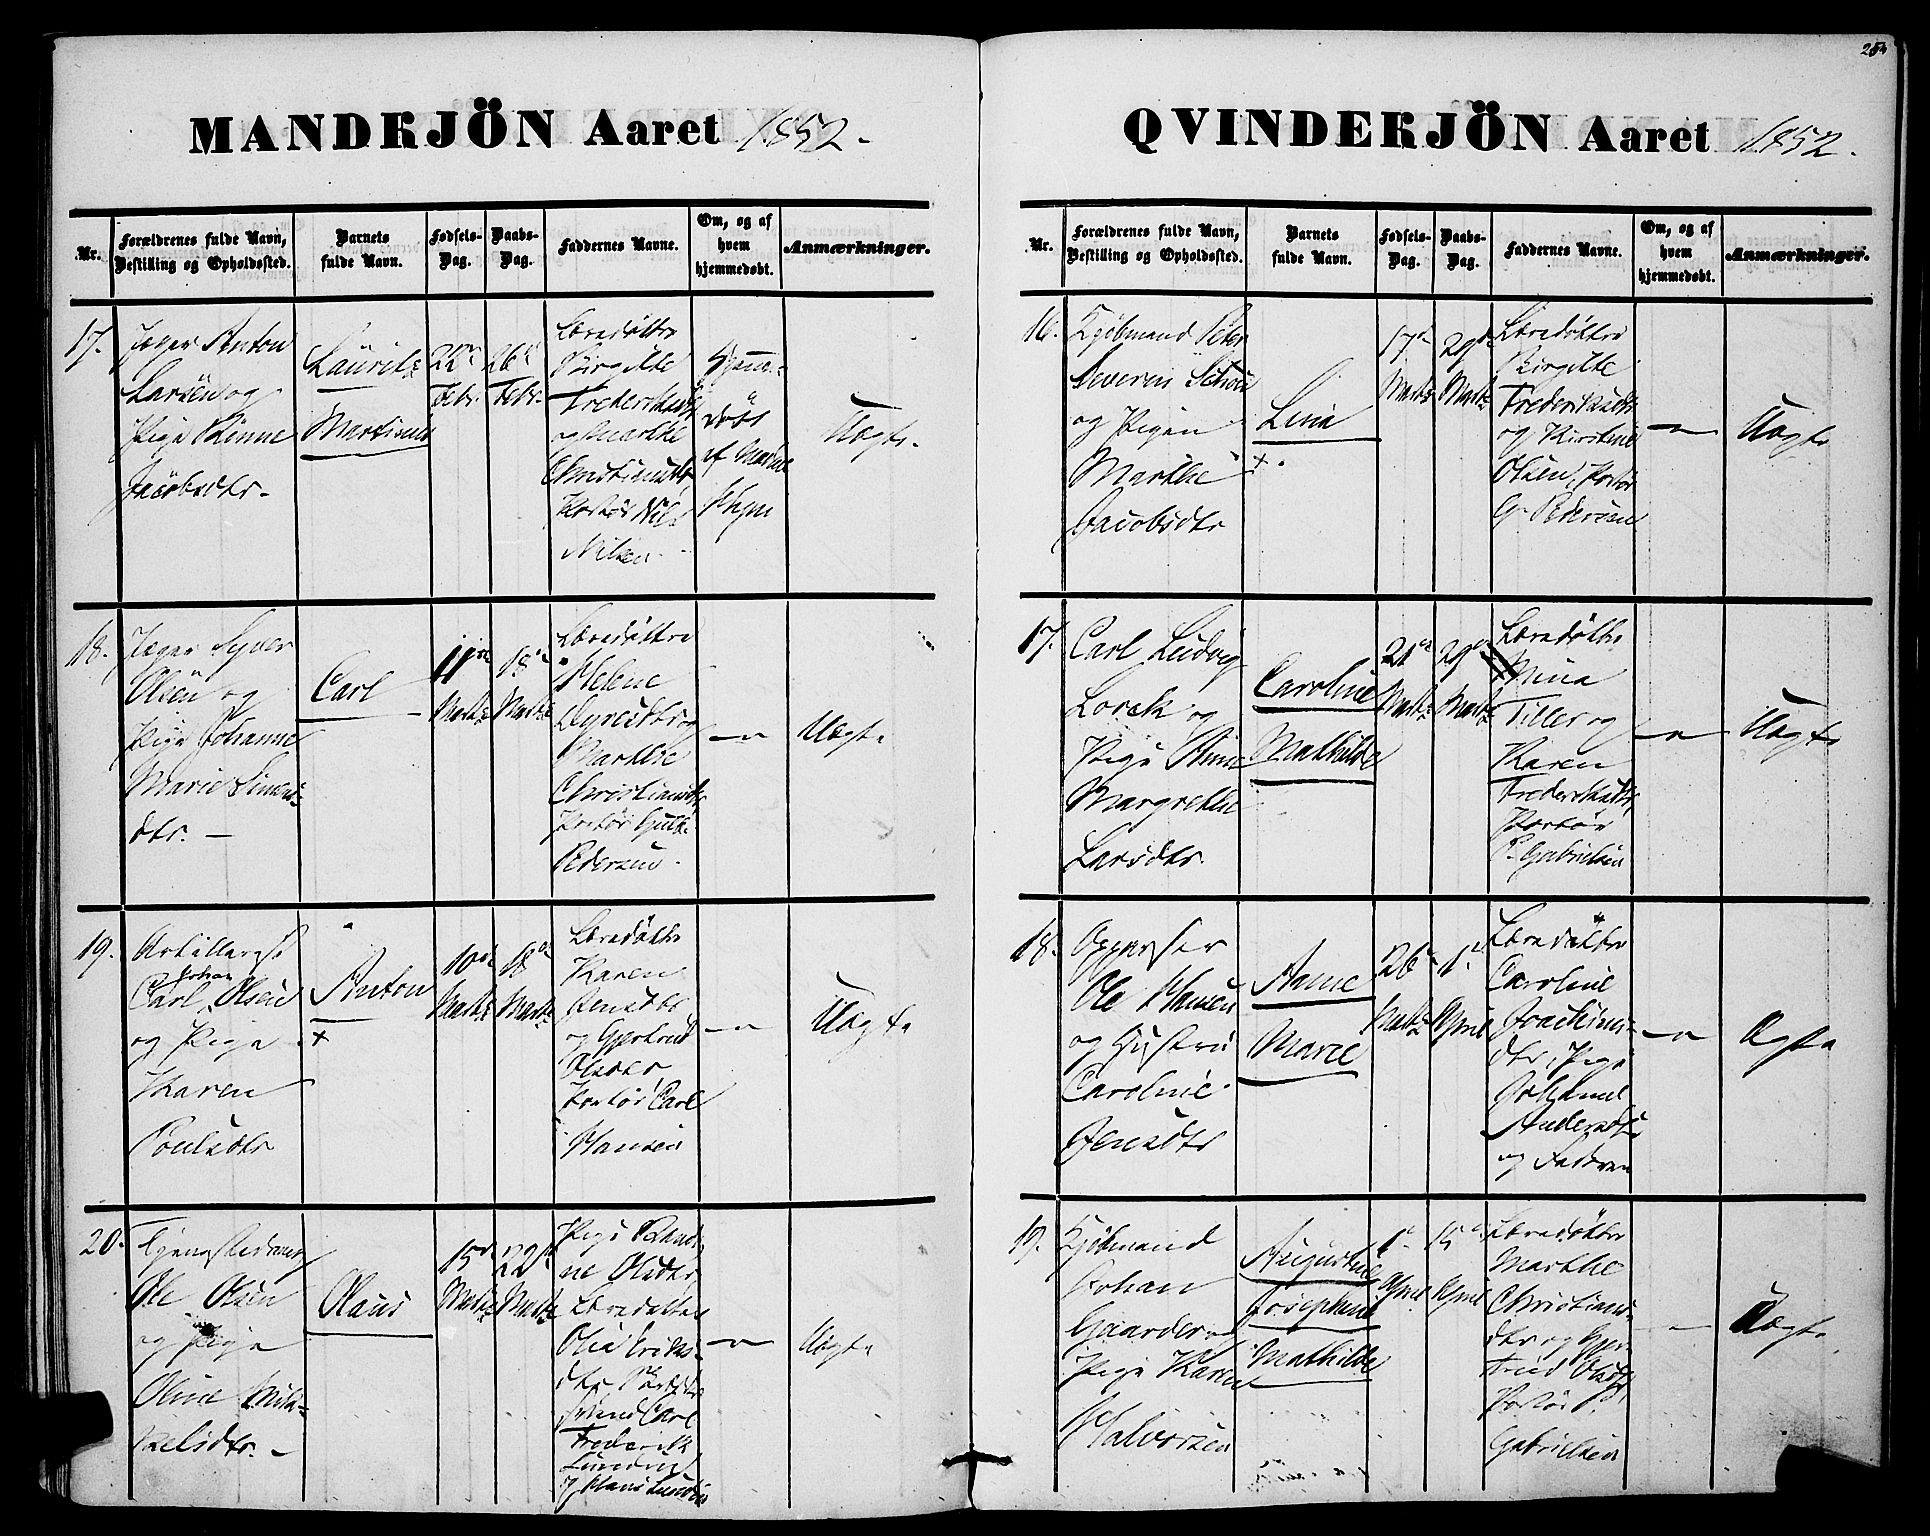 254
MANDKJÖN Aaret 1852.
Nr.
Forældrenes fulde Navn,
Bestilling og Opholdssted.
Barnets
fulde Navn.
Fødsels-
Dag.
Daabs-
Dag.
Faddernes Navne.
Om, og af
hvem
hjemmedøbt.
Anmærkninger.
17.
Jæger Anton
Larsen og
Pige Rinne
Jacobsdtr.
Lauritz
Martinus
22
Febr.
26
Febr.
Læredøttre
Birgitte
Frederiksdtr
og Marthe
Christiansdtr
Portør Nils
Nilsen
Hjem-
døbt
af
Uægte.
18.
Jæger Syver
Olsen og
Pige Johanne
Marie Simens-
dtr.
Carl
11te
Marts
18
Marts
Læredøttre
Helene
og
Marthe
Christiansdtr
Portør
Pedersen
— " —
Uægte
19.
Artillerist
Johan
Carl Olsen
og Pige
Karen
Poulsdtr
Anton
+
10de
Marts
18de
Marts
Læredøttre
Karen
Jensdtr
og Gjertrud
Olsdtr
Portør Carl
Hansen
— " —
Uægte
20.
Ole Olsen
og Pige
Oline Mik-
kelsdtr.
Olaus
15d
Marts
22d
Marts
Pige Randi-
ne Olsdtr
Læredøttre
Olea Eriks-
dtr
Svend Carl
Frederik
Lundin
og Hans Lundin
— " —
Uægte
QVINDEKJÖN Aaret 1852.
Nr.
Forældrenes fulde Navn,
Bestilling og Opholdssted.
Barnets
fulde Navn.
Fødsels-
Dag.
Daabs-
Dag.
Faddernes Navne.
Om, og af
hvem
hjemmedøbt.
Anmærkninger.
16.
Kjøbmand Peter
Severin
og Pigen
Marthe
Jacobsdtr
Lina
+.
17d
Marts
29d
Marts
Læredøttre
Birgitte
Frederiksdtr
og Kirstine
Olsen, Portør
G. Pedersen
— " —
Uægte
17.
Carl Ludvig
Lorck og
Pige Anne
Margrethe
Larsdtr.
Caroline
Mathilde
21d
Marts
29d
Marts
Læredøttre
Mina
Tiller og
Karen
Frederiksdtr
Portør
P. Gabrielsen
— " —
Uægte
18.
Oppasser
Ole Hansen
og Hustru
Caroline
Jensdtr
Anne
Marie
26
Marts
1.
April
Læredøttre
Caroline
Joachims-
dtr, Pige
Johanne
Andersdtr
og Faderen
— " —
Ægte
19.
Kjøbmand
Johan
Gaarder og
Pige Karen
Halvorsen
Augustine
Josephine
Mathilde
1
April
15
April
Læredøttre
Marthe
Christians-
dtr og Gjer-
trud Olsdtr,
Portør P.
Gabrielsen
— " —
Uægte